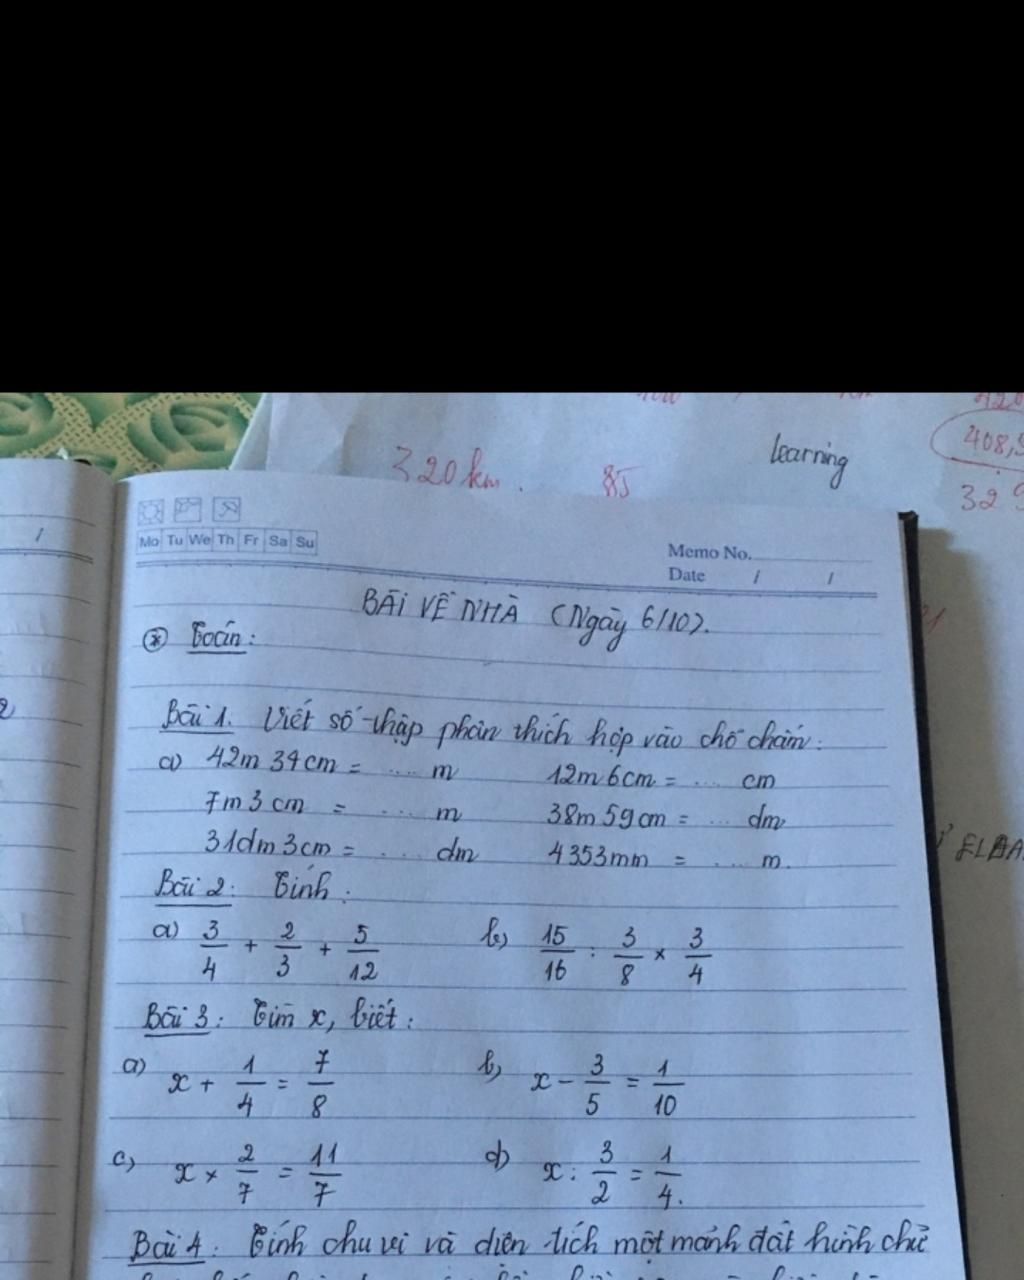 320km.
85
learning
408,5
Mo Tu We Th Fr Sa Su
Memo No.
Date / /
BÀI VỀ NHÀ (Ngày 6/10).
* Toán:
Bài 1. Viết số thập phân thích hợp vào chỗ chấm:
a) 42m 34cm = .... m 12m 6cm = .... cm
7m 3cm = .... m 38m 59cm = ... dm
31dm 3cm = .... dm 4353mm = .... m.
Bài 2: Tính:
a) 3/4 + 2/3 + 5/12 b) 15/16 : 3/8 × 3/4
Bài 3: Tìm x, biết:
a) x + 1/4 = 7/8 b) x - 3/5 = 1/10
c) x × 2/7 = 11/7 d) x : 3/2 = 1/4.
Bài 4: Tính chu vi và diện tích một mảnh đất hình chữ